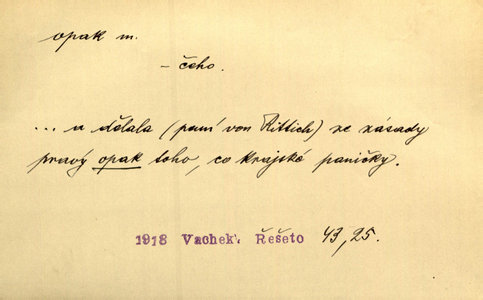 opak m.
– čeho.
... a dělala (paní von Rittich) ze zásady
pravý opak toho, co krajské paničky.
1918 Vachek: Řešeto 43, 25.